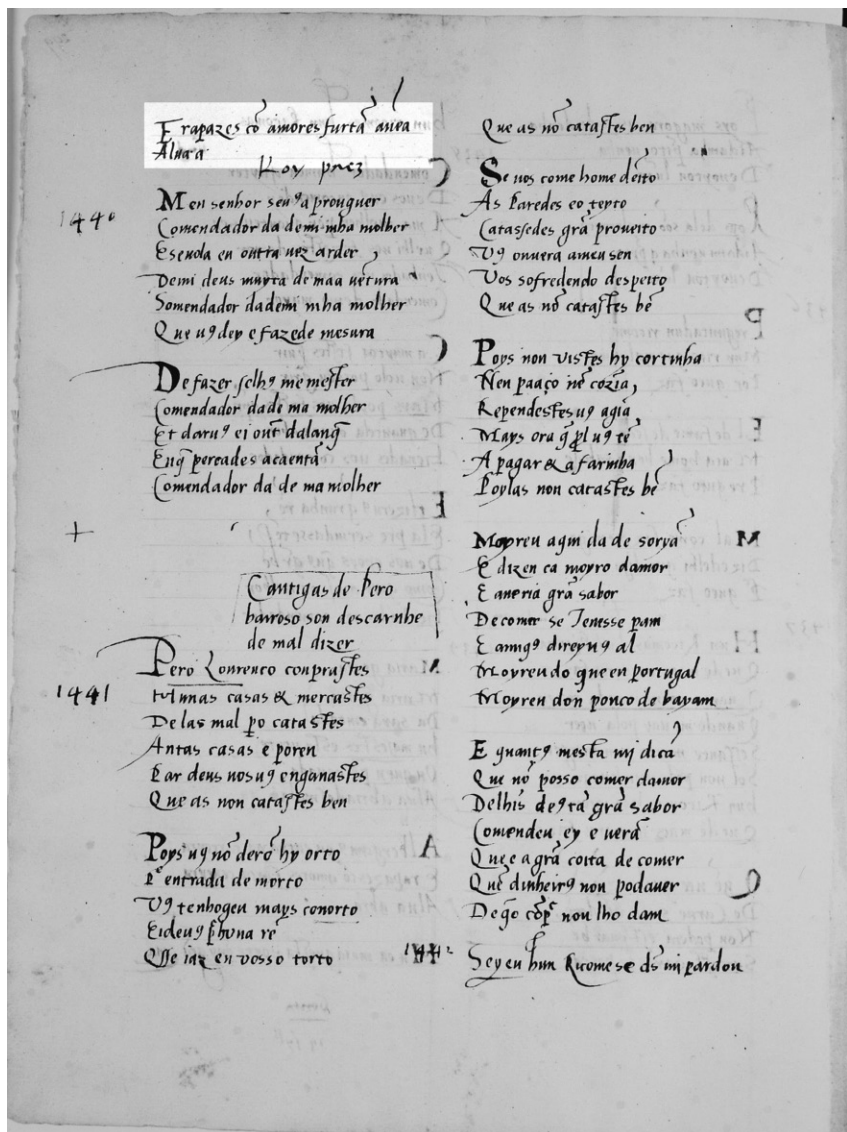 E rapazes cõ amores furtã auea
Aluaa
Roy paez
1440
Meu senhor seu9 aprouguer
Comendador dademi mha molher
Eseuola eu outra uez arder
Demi deus muyta de maa uẽtura
Somendador dademi mha molher
Que u9 dey e fazede mesura
De fazer selh9 me mester
Comendador dade ma molher
Et daru9 ei out dalanq̃
Enq̃ pereades acaentã
Comendador da de ma molher
Cantigas de Pero
barroso son descarnhe
de mal dizer
1441
Pero Lourenco conprastes
Hunas casas & mercastes
De las mal po catastes
Antas casas e poren
Par deus nosu9 enganastes
Que as non catastes ben
Poys u9 nõ derõ hy orto
entrada de morto
U9 tenhogeu mays conorto
Eideu9 hũna rẽ
Que iaz en vosso torto
Que as nõ catastes ben
Se uos come home deito
As Paredes eo teyto
Catassedes grã proueito
U9 ouuera ameu sen
Uos sofredendo despeito
Que as nõ catastes bẽ
Poys non vistes hy cortinha
Nen paaço nẽ cozĩa
Rependestesu9 agĩa
Mays ora q̃ ꝓl u9 tẽ
A pagar & a farinha
Poylas non catastes bẽ
Moyreu aqui da de soryã
E dizen ca moyro damor
E aueria grã sabor
De comer se Teuesse pam
E amig9 direyu9 al
Moyreudo que en portugal
Moyreu don ponco de bayam
E quant9 mesta mi dicã
Que nõ posso comer damor
Delhis de9 tã grã sabor
Comendeu ey e uerã
Que e a grã coita de comer
Que dinheir9 non podauer
De q̃o cõpr̃ nou lho dam
1442
Seyeu hun Ricome se ds mi pardon